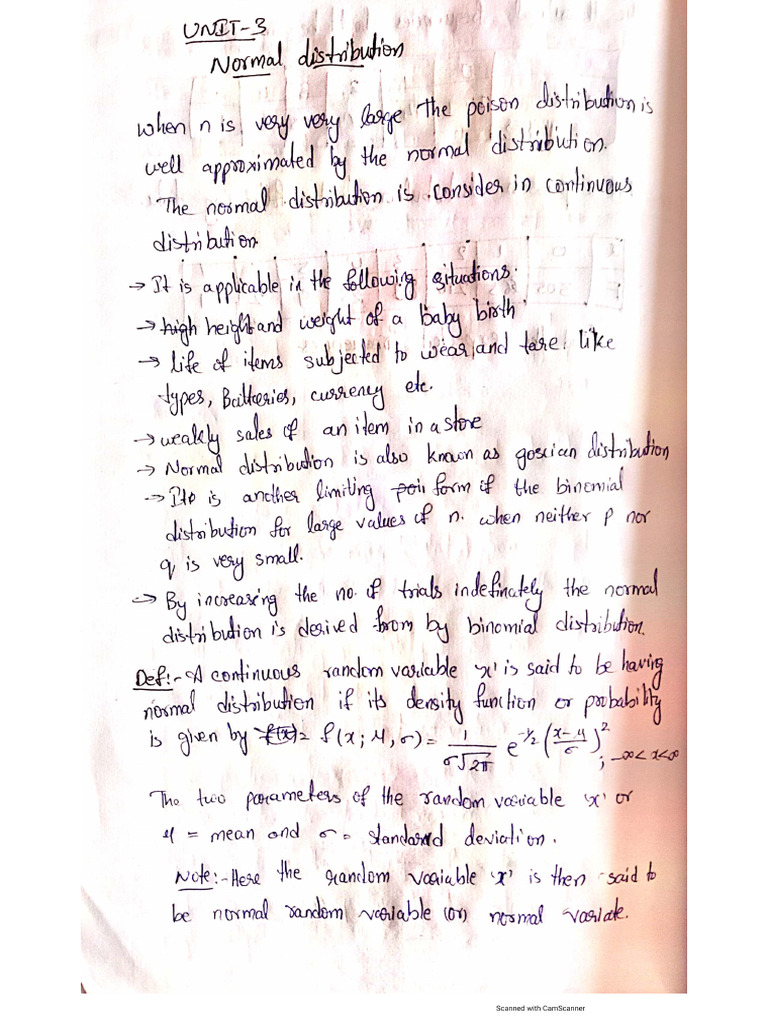 UNIT-3
Normal distribution
When n is very very large the poison distribution is
well approximated by the normal distribution.
The normal distribution is consider in continuous
distribution
→ It is applicable in the following situations.
→ high height and weight of a baby birth
→ life of items subjected to wear and tare like
types, Batteries, currency etc.
→ weakly sales of an item in a store
→ Normal distribution is also known as goscian distribution
→ It is another limiting poii form if the binomial
distribution for large values of n. when neither p nor
q is very small.
→ By increasing the no. of trials indefinately the normal
distribution is desived from by binomial distribution.
Def:- A continuous random variable 'x' is said to be having
normal distribution if its density function or probability
is given by f(x)= f(x; μ, σ) = 1/σ√2π e^-1/2 (x-μ/σ)^2 ; -∞<x<∞
The two parameters of the random variable 'x' or
μ = mean and σ = standard deviation.
Note:- Here the random variable 'x' is then said to
be normal random variable (or) normal variate.
Scanned with CamScanner